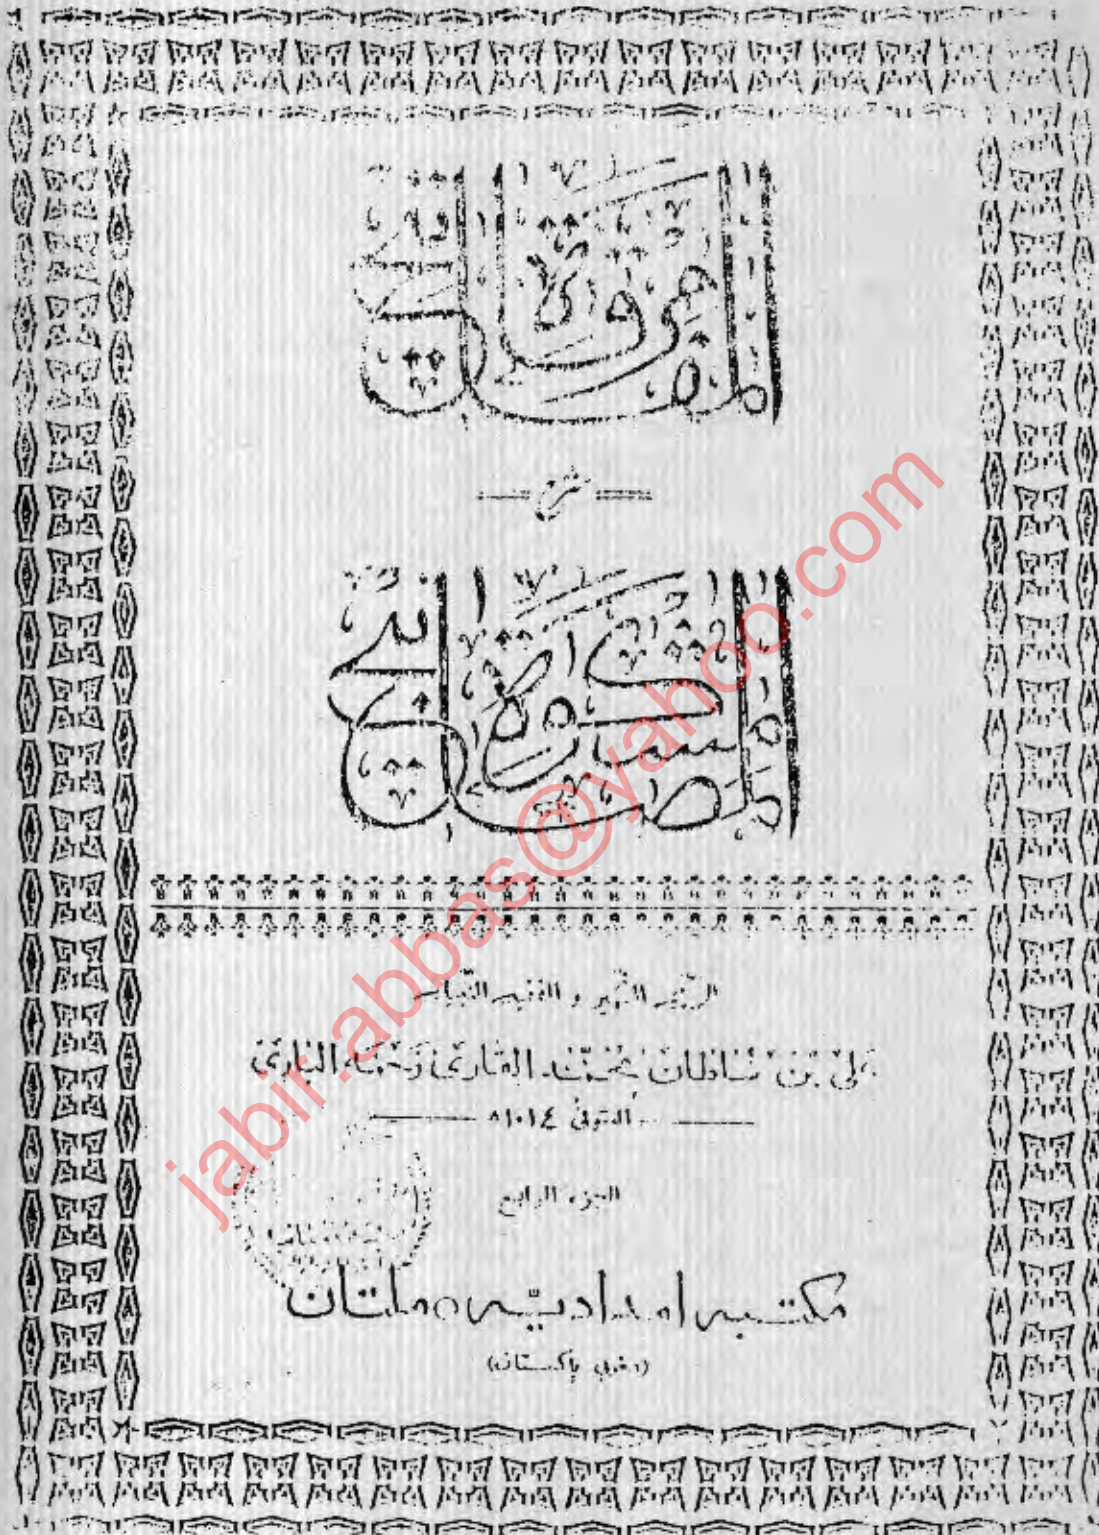 المرقاة المفاتيح
شرح
مشكاة المصابيح
للشيخ الشهير و الفقيه النبيل
علي بن سلطان محمد القاري رحمه الباري
المتوفى ١٠١٤ه
الجزء الرابع
مكتبه امداديه ملتان
(مغربي پاكستان)
jabir.abbas@yahoo.com